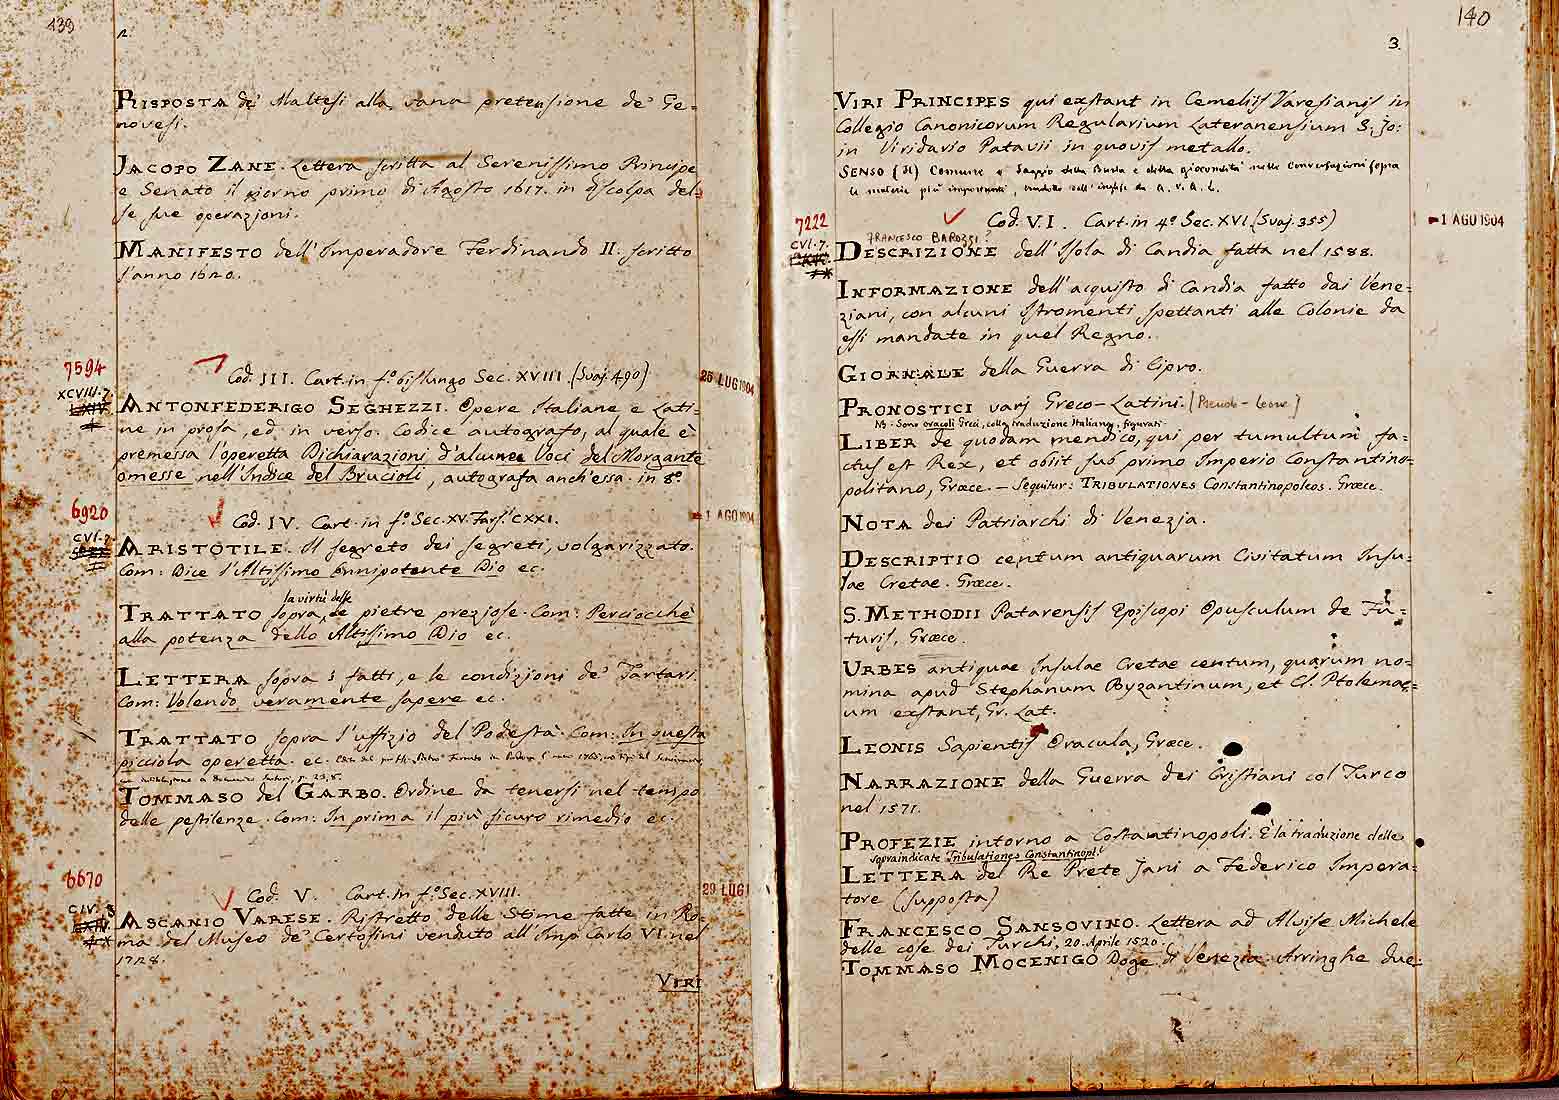 139
2.
RISPOSTA de' Maltesi alla vana pretensione de' Ge=
novesi.
JACOPO ZANE. Lettera scritta al Serenissimo Principe
e Senato il giorno primo di Agosto 1617. in discolpa del=
le sue operazioni.
MANIFESTO dell'Imperadore Ferdinando II. scritto
l'anno 1620.
7594
XCVIII.7.
Cod. III. Cart. in f.º bislungo Sec. XVIII. (Svaj. 490)
25 LUG 1904
ANTONFEDERIGO SEGHEZZI. Opere Italiane e Lati-
ne in prosa, ed in verso. Codice autografo, al quale è
premessa l'operetta Dichiarazioni d'alcune Voci del Morgante
omesse nell'Indice del Brucioli, autografa anch'essa. in 8.º
6920
CVI.7.
Cod. IV. Cart. in f.º Sec. XV. Fars. CXXI.
1 AGO 1904
ARISTOTILE. Il segreto dei segreti, volgarizzato.
Com: Dice l'Altissimo Onnipotente Dio ec.
la virtù delle
TRATTATO sopra le pietre preziose. Com: Perciocchè
alla potenza dello Altissimo Dio ec.
LETTERA sopra i fatti, e le condizioni de' Tartari.
Com: Volendo veramente sapere ec.
TRATTATO sopra l'uffizio del Podestà. Com: In questa
picciola operetta. ec.
TOMMASO del GARBO. Ordine da tenersi nel tempo
delle pestilenze. Com: In prima il più sicuro rimedio ec.
6670
CIV. 8
Cod. V. Cart. in f.º Sec. XVIII.
29 LUGL
ASCANIO VARESE. Ristretto delle Stime fatte in Ro=
ma del Museo de' Certosini venduto all'Imp. Carlo VI. nel
1728.
VIRI
140
3.
VIRI PRINCIPES qui exstant in Cemeliis Varesianis in
Collegio Canonicorum Regularium Lateranensium S. Jo:
in Viridario Patavii in quovis metallo.
SENSO (il) Comune o Saggio della Burla e della giocondità nelle conversazioni sopra
le materie più importanti, tradotto dall'inglese da
7222
CVI.7.
Cod. VI. Cart. in 4.º Sec. XVI. (Svaj. 355)
1 AGO 1904
FRANCESCO BAROZZI?
DESCRIZIONE dell'Isola di Candia fatta nel 1588.
INFORMAZIONE dell'acquisto di Candia fatto dai Vene=
ziani, con alcuni Istromenti spettanti alle Colonie da
essi mandate in quel Regno.
GIORNALE della Guerra di Cipro.
PRONOSTICI varj Greco-Latini. [Pseudo-Leone]
NB. Sono oracoli Greci, colla traduzione Italiana, figurati.
LIBER de quodam mendico, qui per tumultum fa=
ctus est Rex, et obiit sub primo Imperio Constantino=
politano, Græce. - Sequitur: TRIBULATIONES Constantinopoleos. Græce.
NOTA dei Patriarchi di Venezia.
DESCRIPTIO centum antiquarum Civitatum Insu=
lae Cretae. Græce.
S. METHODII Patarensis Episcopi Opusculum de Fu=
turis, Græce.
URBES antiquae Insulae Cretae centum, quarum no=
mina apud Stephanum Byzantinum, et Cl. Ptolemae=
um exstant, Gr. Lat.
LEONIS Sapientis Oracula, Græce.
NARRAZIONE della Guerra dei Cristiani col Turco
nel 1571.
PROFEZIE intorno a Costantinopoli. È la traduzione delle
sopraindicate Tribulationes Constantinopl.
LETTERA del Re Prete Jani a Federico Impera-
tore (supposta)
FRANCESCO SANSOVINO. Lettera ad Alvise Michele
delle cose dei Turchi, 20. Aprile 1520.
TOMMASO MOCENIGO Doge di Venezia. Arringhe due.